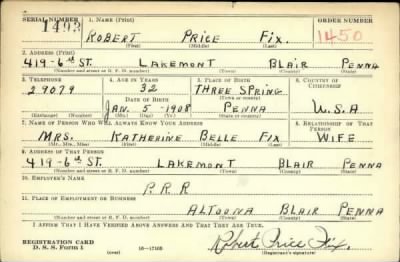 SERIAL NUMBER 1. NAME (Print) ORDER NUMBER
1493 ROBERT PRICE FIX. 1450
(First) (Middle) (Last)
2. ADDRESS (Print)
419-6th ST. LAKEMONT BLAIR PENNA
(Number and street or R. F. D. number) (Town) (County) (State)
3. TELEPHONE 4. AGE IN YEARS 5. PLACE OF BIRTH 6. COUNTRY OF CITIZENSHIP
29079 32 THREE SPRING
DATE OF BIRTH (Town or county)
JAN. 5-1908 PENNA U.S.A
(Exchange) (Number) (Mo.) (Day) (Yr.) (State or country)
7. NAME OF PERSON WHO WILL ALWAYS KNOW YOUR ADDRESS 8. RELATIONSHIP OF THAT PERSON
MRS. KATHERINE BELLE FIX WIFE
(Mr., Mrs., Miss) (First) (Middle) (Last)
9. ADDRESS OF THAT PERSON
419-6th ST. LAKEMONT BLAIR PENNA
(Number and street or R. F. D. number) (Town) (County) (State)
10. EMPLOYER'S NAME
P.R.R
11. PLACE OF EMPLOYMENT OR BUSINESS
ALTOONA BLAIR PENNA
(Number and street or R. F. D. number) (Town) (County) (State)
I AFFIRM THAT I HAVE VERIFIED ABOVE ANSWERS AND THAT THEY ARE TRUE.
REGISTRATION CARD
D. S. S. Form 1 (over) 16-17105 Robert Price Fix.
(Registrant's signature)